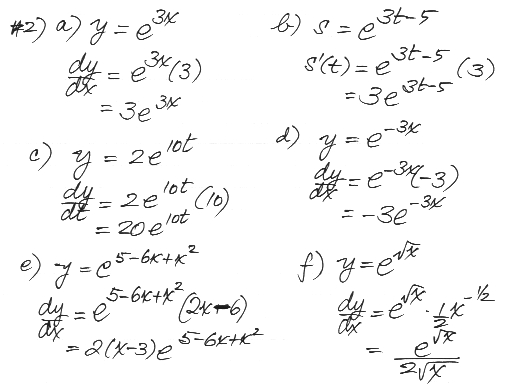 #2) a) y = e^{3x}
dy/dx = e^{3x}(3)
= 3e^{3x}
b) s = e^{3t-5}
s'(t) = e^{3t-5} (3)
= 3e^{3t-5}
c) y = 2e^{10t}
dy/dt = 2e^{10t} (10)
= 20e^{10t}
d) y = e^{-3x}
dy/dx = e^{-3x}(-3)
= -3e^{-3x}
e) y = e^{5-6x+x^2}
dy/dx = e^{5-6x+x^2} (2x-6)
= 2(x-3)e^{5-6x+x^2}
f) y = e^{√x}
dy/dx = e^{√x} · 1/2 x^{-1/2}
= e^{√x}/2√x